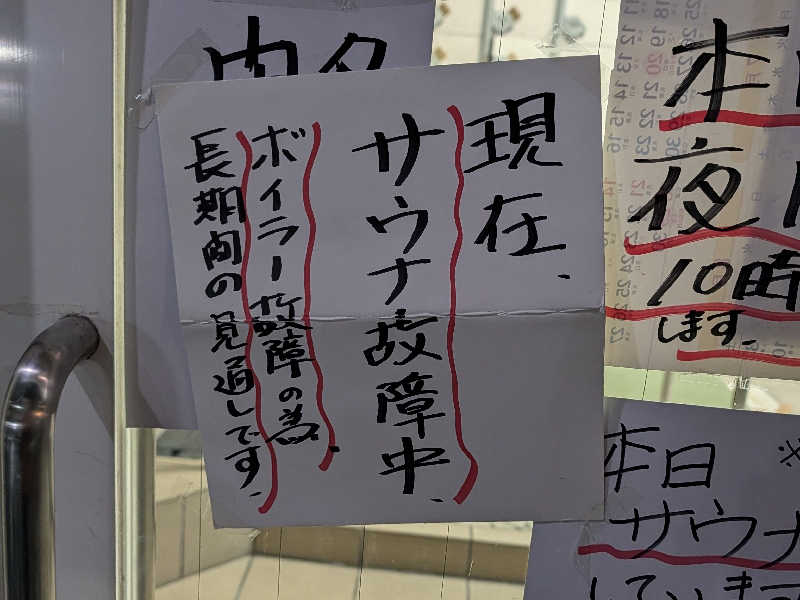 現在、
サウナ故障中、
ボイラー故障の為、
長期間の見通しです。
本日
夜
10時
します。
本日
サウナ
しています